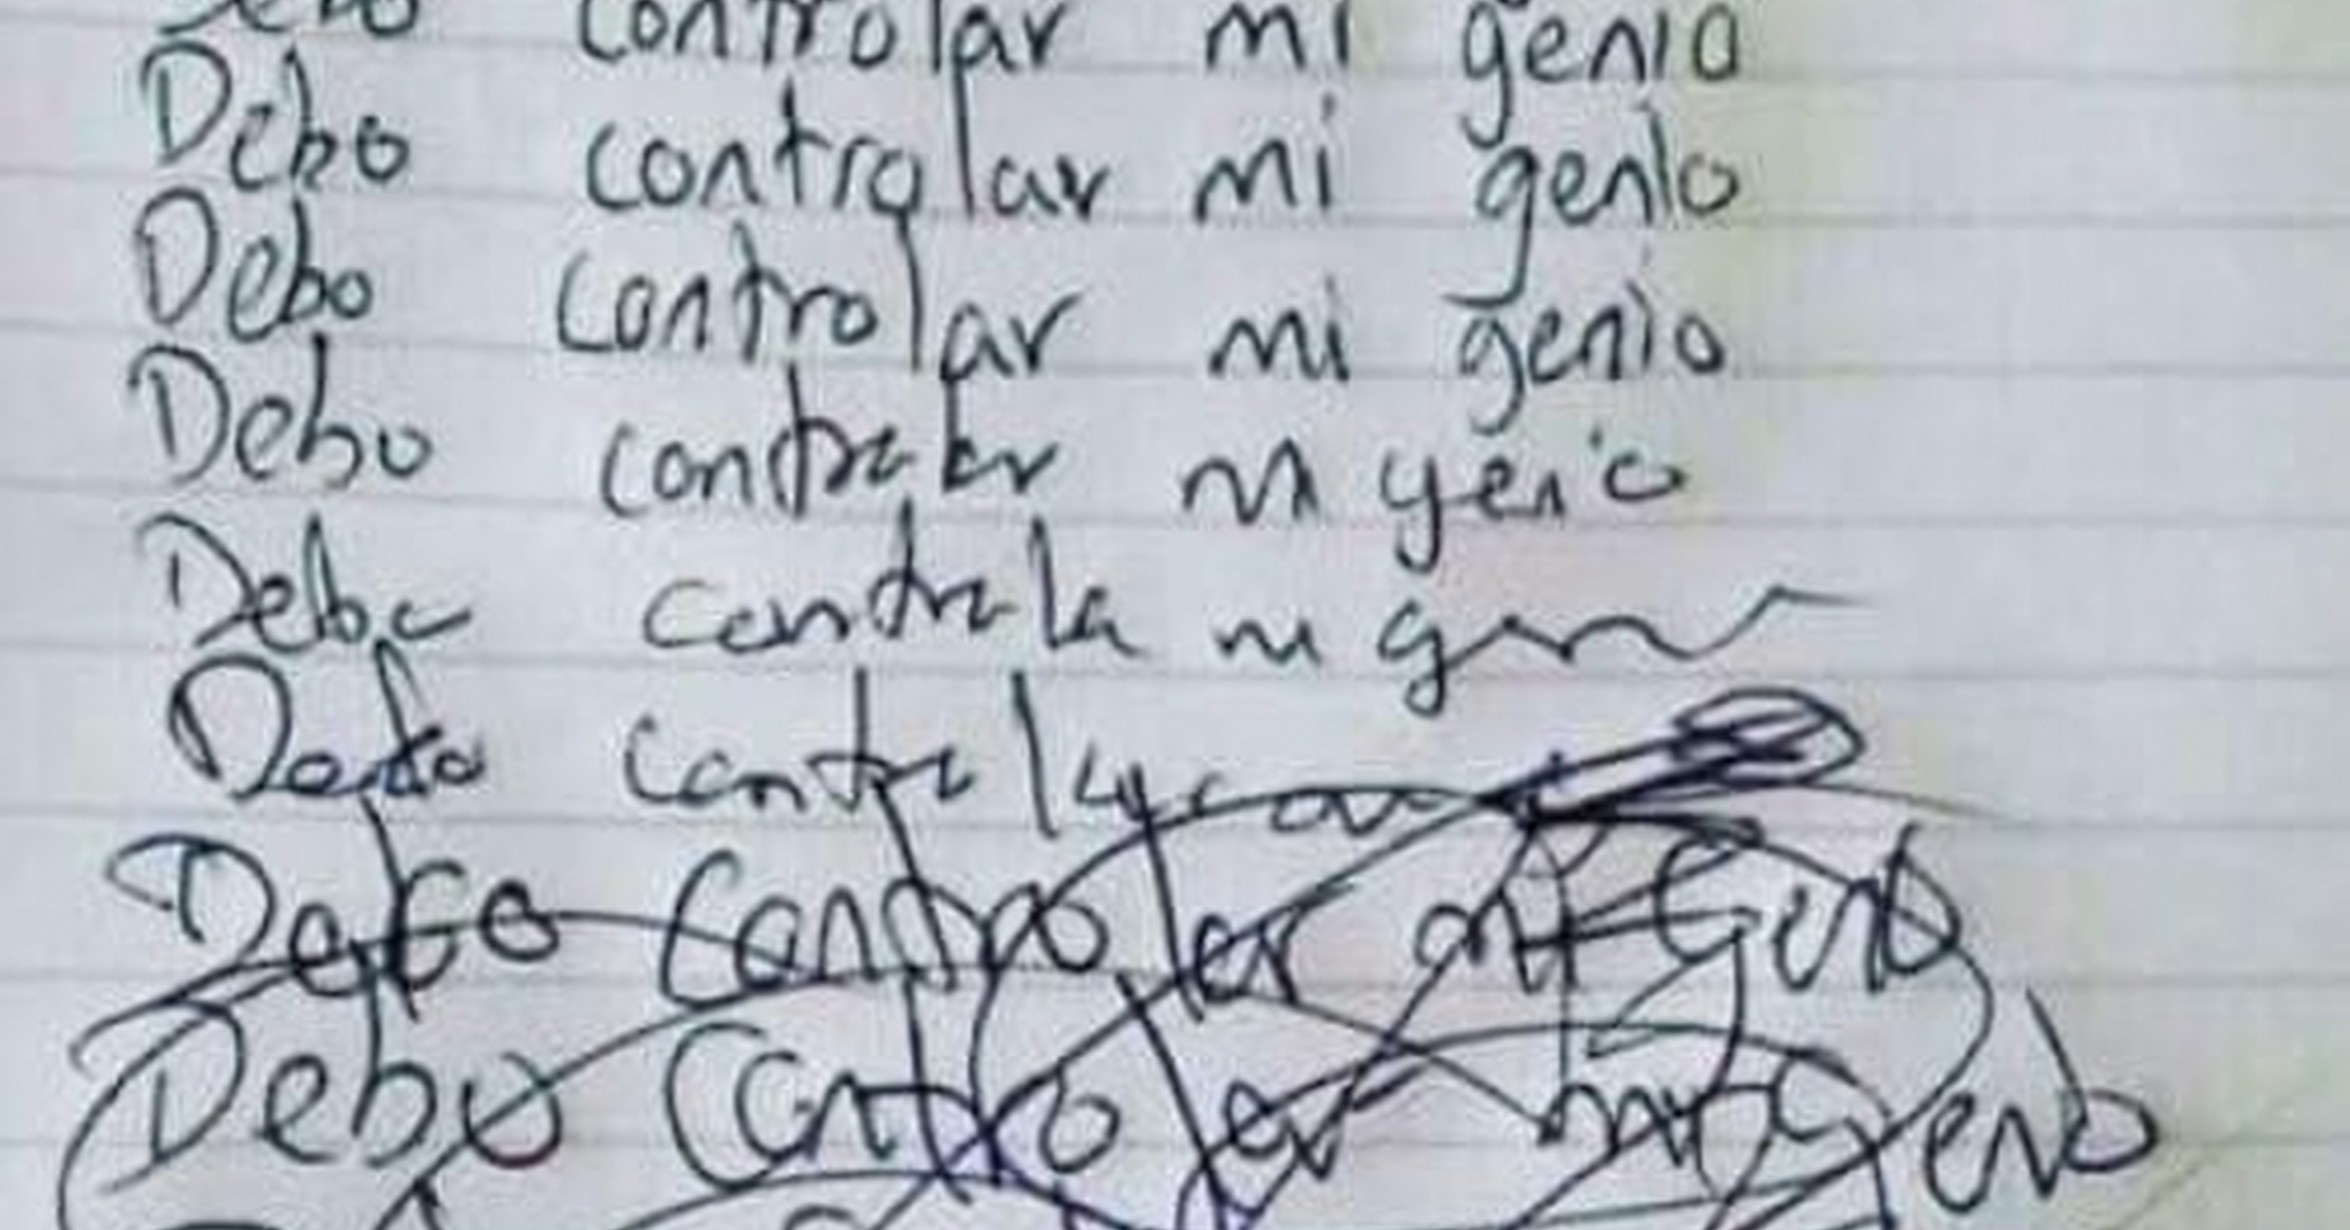 Debo controlar mi genio
Debo controlar mi genio
Debo controlar mi genio
Debo controlar mi genio
Debo controla mi
Debo
Debo controlar mi genio
Debo controlar mi genio